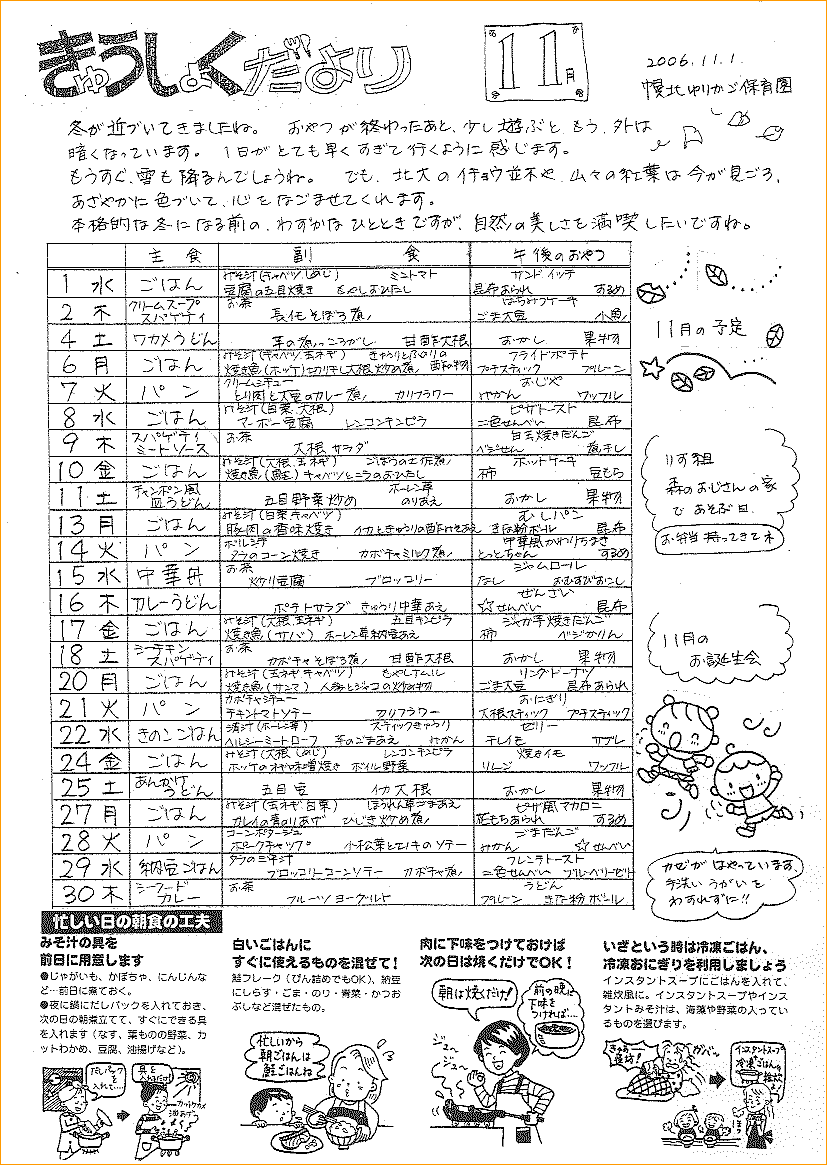 きゅうしょくだより
11月
2006.11.1.
幌北ゆりかご保育園
冬が近づいてきましたね。 おやつが終わったあと、少し遊ぶと、もう、外は
暗くなっています。 1日がとても早くすぎて行くように感じます。
もうすぐ、雪も降るんでしょうね。 でも、北大のイチョウ並木や、山々の紅葉は今が見ごろ、
あざやかに色づいて、心をなごませてくれます。
本格的な冬になる前の、わずかなひとときですが、自然の美しさを満喫したいですね。
主食 副食 午後のおやつ
1 水 ごはん みそ汁(キャベツ、しめじ) ミニトマト サンドイッチ
豆腐の五目焼き もやしおひたし 昆布あられ するめ
2 木 クリームスープスパゲティ お茶 はちみつケーキ
長いもそぼろ煮 ごま大豆 小魚
4 土 ワカメうどん 芋の煮っころがし 甘酢大根 おかし 果物
6 月 ごはん みそ汁(キャベツ、玉ネギ) フライドポテト
焼き魚(ホッケ) 切り干し大根炒め煮 プチスティック プルーン
7 火 パン クリームシチュー おじや
とり肉と大豆のカレー煮 カリフラワー みかん ワッフル
8 水 ごはん みそ汁(白菜、大根) ピザトースト
マーボー豆腐 レンコンキンピラ 二色せんべい 昆布
9 木 スパゲティミートソース お茶 白玉焼きだんご
大根サラダ ベジせん 煮干し
10 金 ごはん みそ汁(大根、玉ネギ) ごぼうの土佐煮 ホットケーキ
焼き魚(鮭) キャベツとニラのおひたし 柿 豆もち
11 土 チャンポン風皿うどん 五目野菜炒め ホーレン草のりあえ おかし 果物
13 月 ごはん みそ汁(白菜、キャベツ) むしパン
豚肉の香味焼き イカときゅうりの酢みそあえ きな粉ボール 昆布
14 火 パン ボルシチ 中華風かわりちまき
タラのコーン焼き カボチャミルク煮 とっとちゃん するめ
15 水 中華丼 お茶 ジャムロール
炒り豆腐 ブロッコリー なし おむすびおこし
16 木 カレーうどん ポテトサラダ きゅうり中華あえ ぜんざい
☆せんべい 昆布
17 金 ごはん みそ汁(白菜、玉ネギ) 五目キンピラ ジャガ芋焼きだんご
焼き魚(サバ) ホーレン草納豆あえ 柿 ベジかりん
18 土 シーチキンスパゲティ お茶
カボチャそぼろ煮 甘酢大根 おかし 果物
20 月 ごはん みそ汁(玉ネギ、キャベツ) もやしナムル リングドーナツ
焼き魚(サンマ) 人参とジャコの炒め物 ごま大豆 昆布あられ
21 火 パン カボチャシチュー おにぎり
チキントマトソテー カリフラワー 大根スティック プチスティック
22 水 きのこごはん 清汁(ホーレン草) スティックきゅうり ゼリー
ヘルシーミートローフ 芋のごまあえ みかん チレイモ サブレ
24 金 ごはん みそ汁(大根、しめじ) レンコンキンピラ 焼きイモ
ホッケのネギみそ焼き ボイル野菜 ワッフル
25 土 あんかけうどん 五目豆 イカ大根 おかし 果物
27 月 ごはん みそ汁(玉ネギ、白菜) ほうれん草ごまあえ ピザ風マカロニ
カレイの青のりあげ ひじき炒め煮 花もちあられ するめ
28 火 パン コーンポタージュ ごまだんご
ポークチャップ 小松菜とエノキのソテー みかん ☆せんべい
29 水 納豆ごはん タラの三平汁 フレンチトースト
ブロッコリーコーンソテー カボチャ煮 二色せんべい プルーベリーゼリー
30 木 シーフードカレー お茶 うどん
フルーツヨーグルト プルーン きな粉ボール
11月の予定
りす組
森のおじさんの家
で あそぶ日
お弁当持ってきてネ
11月の
お誕生会
カゼがはやっています
手洗い うがいを
わすれずに!!
忙しい日の朝食の工夫
みそ汁の具を
前日に用意します
●じゃがいも、かぼちゃ、にんじんな
ど…前日に煮ておく。
●夜に鍋にだしパックを入れておき、
次の日の朝煮立てて、すぐにできる具
を入れます(なす、葉ものの野菜、カ
ットわかめ、豆腐、油揚げなど)。
だしパックを入れて…
具を入れるだけ!
カットワカメ
油あげ
白いごはんに
すぐに使えるものを混ぜて!
鮭フレーク(びん詰めでもOK)、納豆
にしらす・ごま・のり・青菜・かつお
ぶしなど混ぜたもの。
忙しいから
朝ごはんは
鮭ごはんね
肉に下味をつけておけば
次の日は焼くだけでOK!
朝は焼くだけ!
前の晩に
下味を
つければ…
ジュ〜
ジュ〜
いざという時は冷凍ごはん、
冷凍おにぎりを利用しましょう
インスタントスープにごはんを入れて、
雑炊風に。インスタントスープやインス
タントみそ汁は、海藻や野菜の入ってい
るものを選びます。
きゃあ〜
寝坊!
ガバッ
インスタントスープ
冷凍ごはんで
雑炊よ